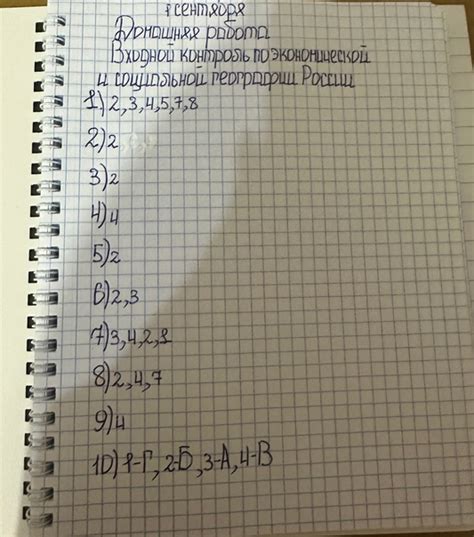 1 сентября
Домашняя работа
Входной контроль по экономической
и социальной географии России
1) 2, 3, 4, 5, 7, 8
2) 2
3) 2
4) 4
5) 2
6) 2, 3
7) 3, 4, 2, 1
8) 2, 4, 7
9) 4
10) 1-Г, 2-Б, 3-А, 4-В